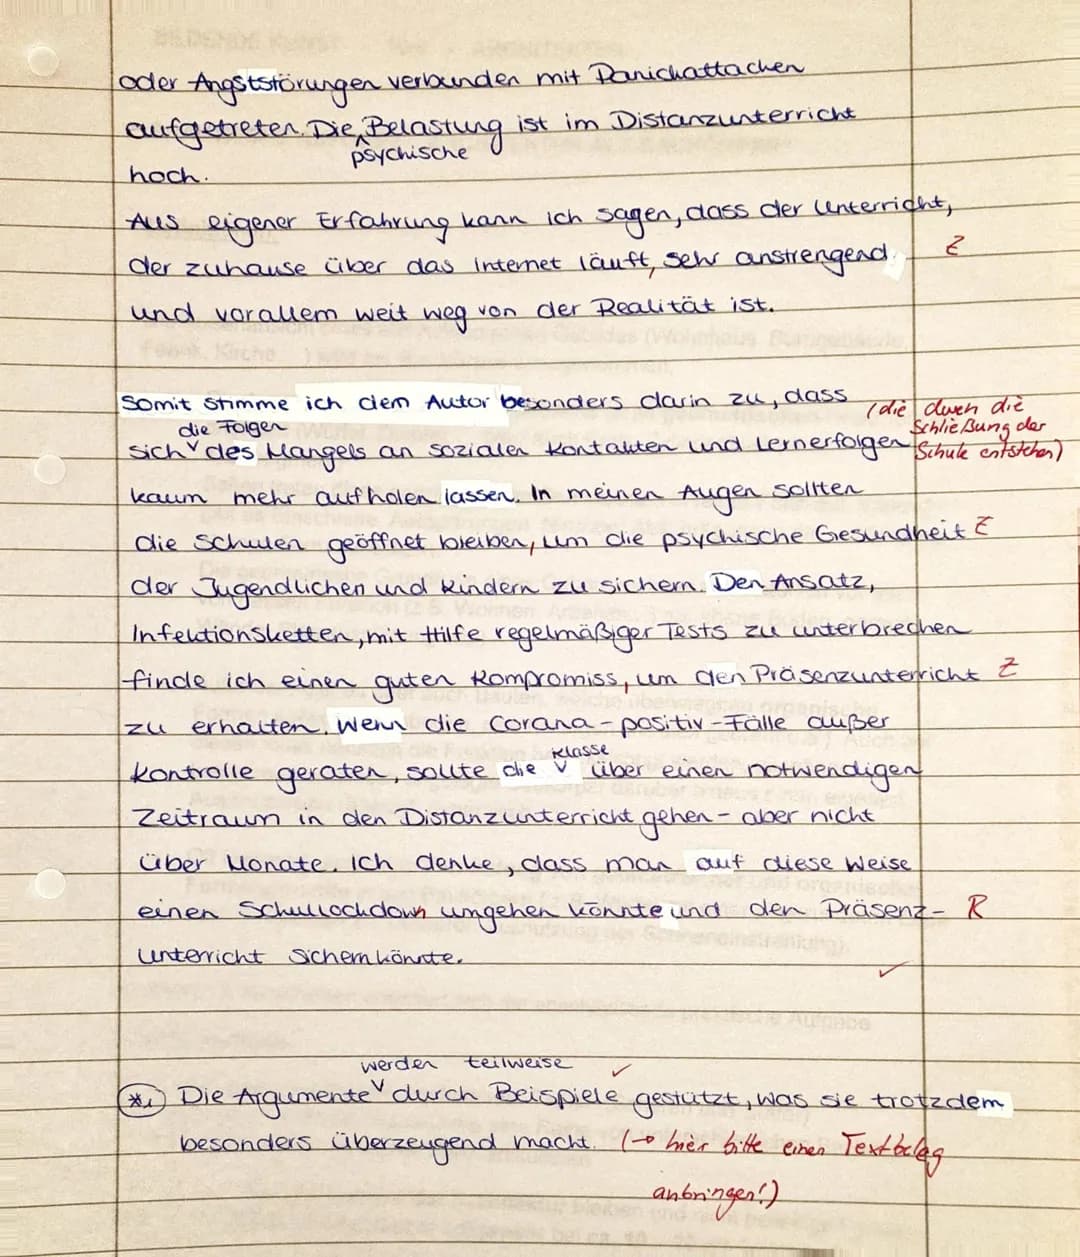 oder Angststörungen verbunden mit Panickattacken
aufgetreten. Die Belastung ist im Distanzunterricht
psychische
hoch.
Aus eigener Erfahrung kann ich sagen, dass der Unterricht,
der zuhause über das Internet läuft, sehr anstrengend. Z
und vorallem weit weg von der Realität ist.
Somit stimme ich dem Autor besonders darin zu, dass (die durch die
die Folgen Schließung der
sich des Mangels an sozialen Kontakten und Lernerfolgen Schule entstehen)
kaum mehr aufholen lassen. In meinen Augen sollten
die Schulen geöffnet bleiben, um die psychische Gesundheit Z
der Jugendlichen und Kindern zu sichern. Den Ansatz,
Infektionsketten, mit Hilfe regelmäßiger Tests zu unterbrechen
finde ich einen guten Kompromiss, um den Präsenzunterricht Z
zu erhalten. Wenn die Corana-positiv-Fälle außer
Klasse
Kontrolle geraten, sollte die über einen notwendigen
Zeitraum in den Distanzunterricht gehen - aber nicht
über Monate. Ich denke, dass man auf diese Weise
einen Schullockdown umgehen könnte und den Präsenz- R
unterricht sichern könnte. ✓
werden teilweise ✓
*1 Die Argumente durch Beispiele gestützt, was sie trotzdem
besonders überzeugend macht. (→ hier bitte einen Textbeleg
anbringen!)